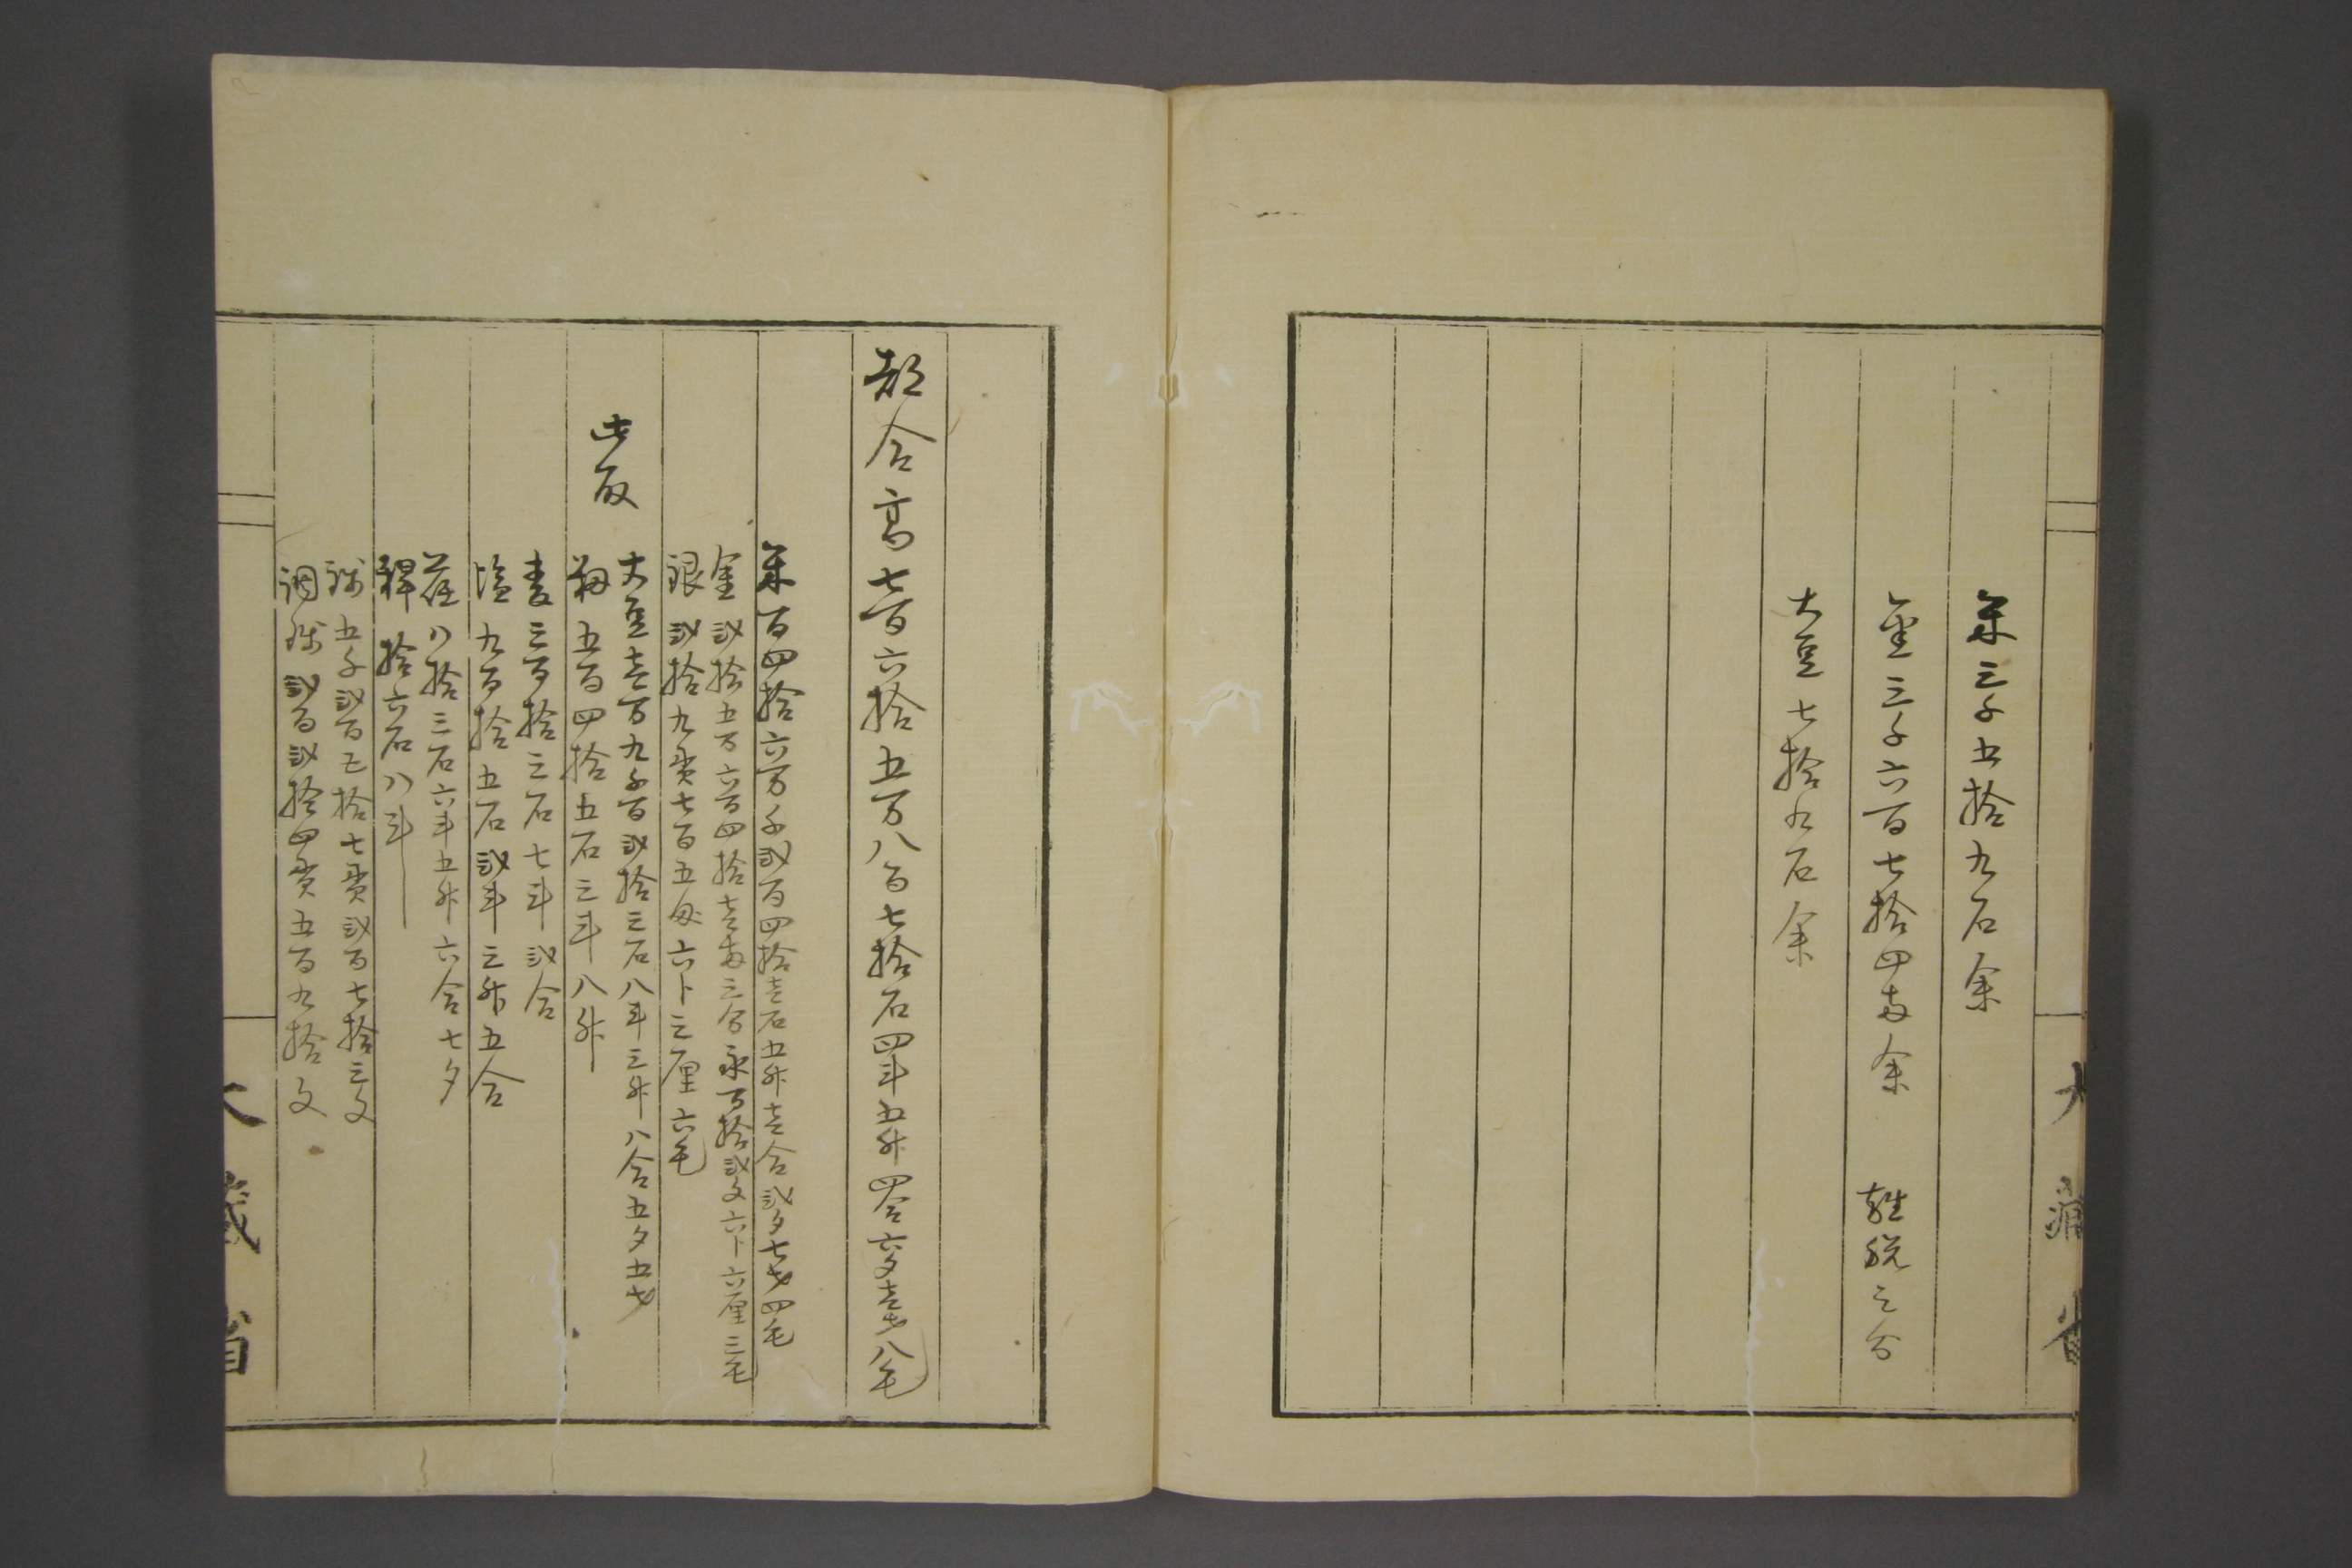 米三千五拾九石余
金三千六百七拾四両余　離脱之分
大豆七拾九石余
大蔵省
都合高七百六拾五万八百七拾石四斗五升四合六夕壱才八毛
米百四拾六万千弐百四拾壱石五升壱合弐夕七才四毛
金弐拾五万六百四拾壱両三分永百拾弐文六卜六厘三毛
銀弐拾九貫七百五匁六卜三厘六毛
此取
大豆壱万九千百弐拾三石八斗三升八合五夕五才
籾五百四拾五石三斗八升
麦三百拾三石七斗弐合
塩九百拾五石弐斗三升五合
荏八拾三石六斗五升六合七夕
稗拾六石八斗
銭五千弐百五拾七貫弐百七拾三文
調銭弐百弐拾四貫五百九拾文
大蔵省